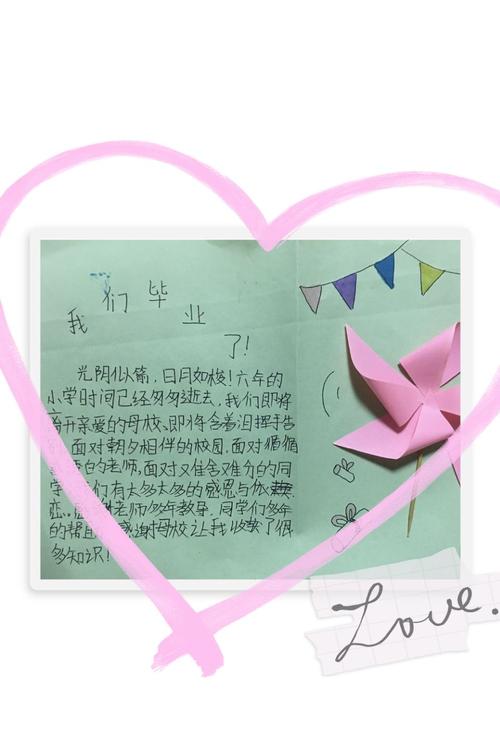 我们毕业了!
光阴似箭,日月如梭!六年的
小学时间已经匆匆逝去,我们即将
离开亲爱的母校、即将含着泪挥手告
别,面对朝夕相伴的校园,面对循循
善的老师,面对又难舍难分的同
学,我们有太多太多的感恩与依
恋。感谢老师多年教导,同学们多年
的帮助,感谢母校让我收获了很
多知识!
Love.